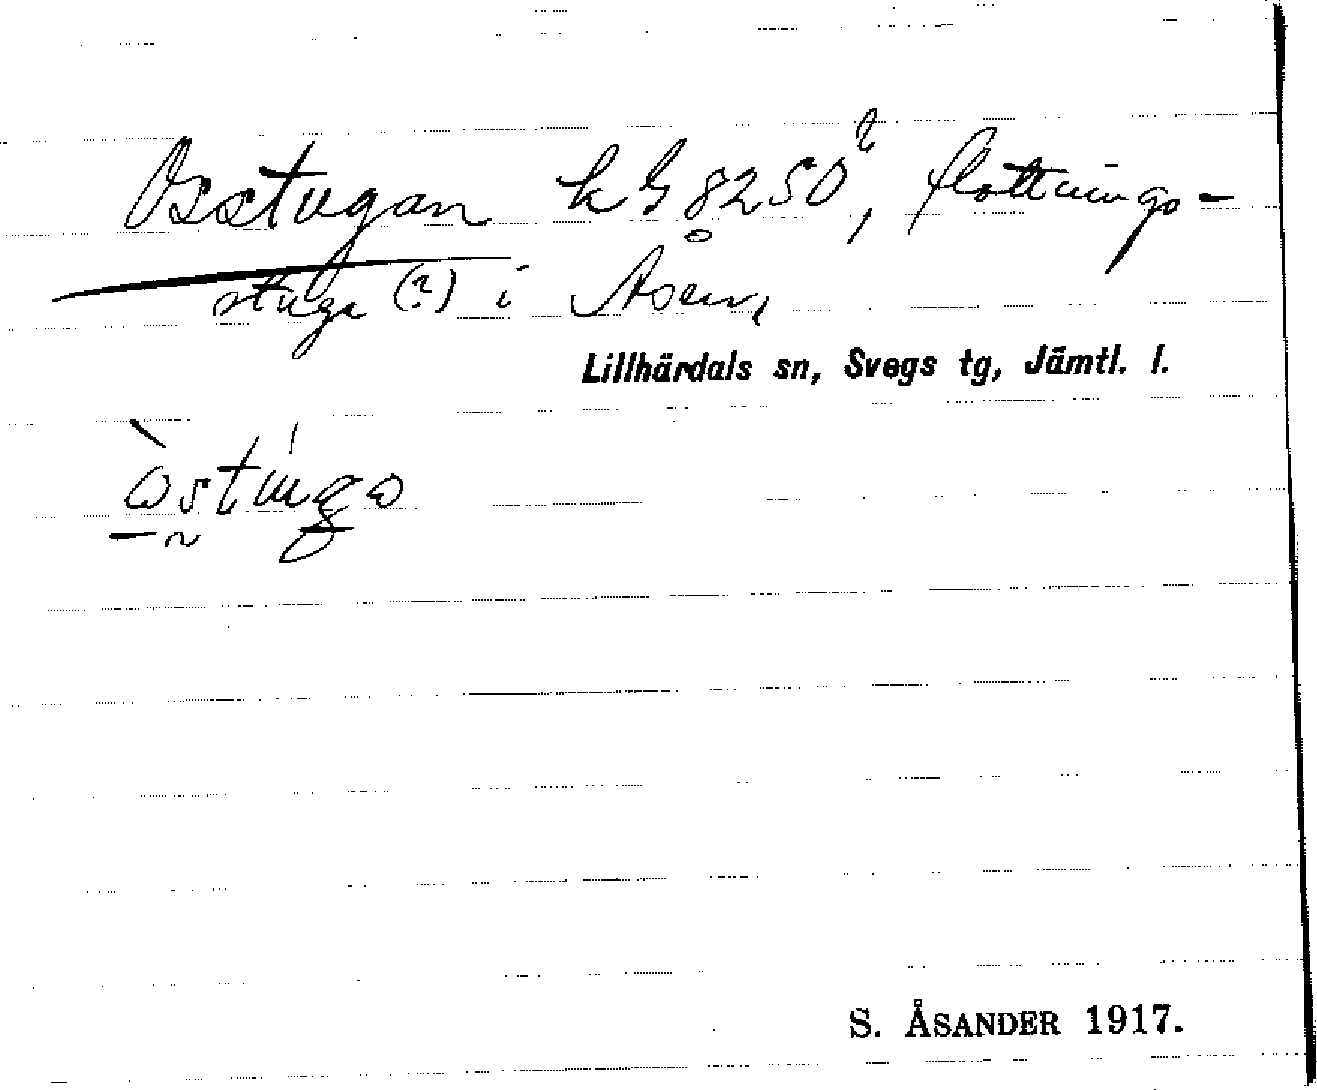 Osstugan kG 8250?, flottnings-
stuga (?) i Åsen,
Lillhärdals sn, Svegs tg, Jämtl. l.
S. ÅSANDER 1917.